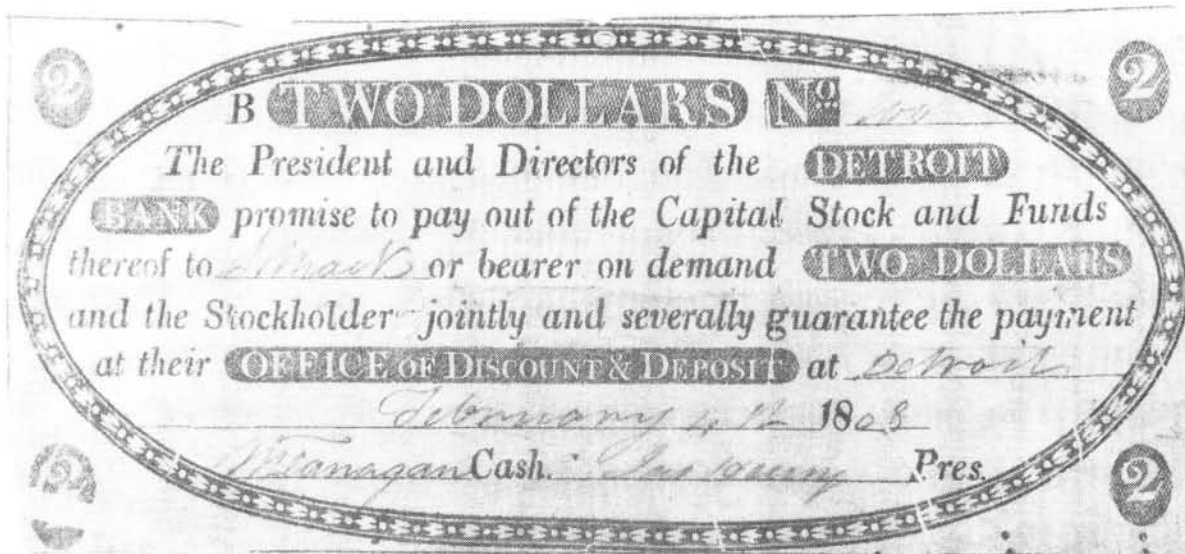 2 2
B TWO DOLLARS No.
The President and Directors of the DETROIT
BANK promise to pay out of the Capital Stock and Funds
thereof to or bearer on demand TWO DOLLARS
and the Stockholder jointly and severally guarantee the payment
at their OFFICE OF DISCOUNT & DEPOSIT at Detroit
February 4th 1808
Flanagan Cash. Pres.
2 2